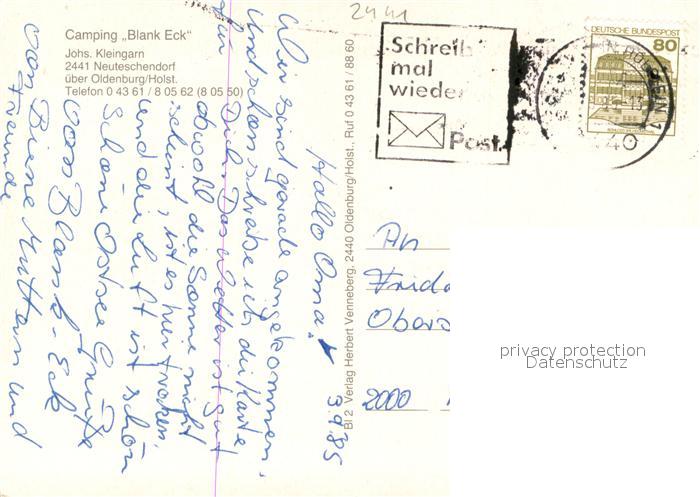 2441
Camping „Blank Eck“
Johs. Kleingarn
2441 Neuteschendorf
über Oldenburg/Holst.
Telefon 0 43 61 / 8 05 62 (8 05 50)
Schreib
mal
wieder
Post
DEUTSCHE BUNDESPOST
80
2440
Hallo Oma!
3.9.85
Wir sind gerade angekommen.
und schon schreibe ich die Karte
an Dich. Das Wetter ist gut
obwohl die Sonne nicht
scheint, ist es hier trocken.
und die Luft ist schön
Schöne Ostsee Grüße
vom Blank-Eck
von Biene Muttern und
Freunde
Bl 2 Verlag Herbert Venneberg, 2440 Oldenburg/Holst., Ruf 0 43 61 / 88 60
An
Frida
Obers
2000
privacy protection
Datenschutz